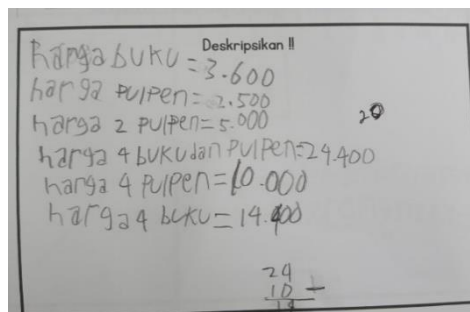 Deskripsikan !!
harga buku = 3.600
harga pulpen = 2.500
harga 2 pulpen = 5.000
20
harga 4 buku dan pulpen = 24.400
harga 4 pulpen = 10.000
harga 4 buku = 14.400
24
10 +
14